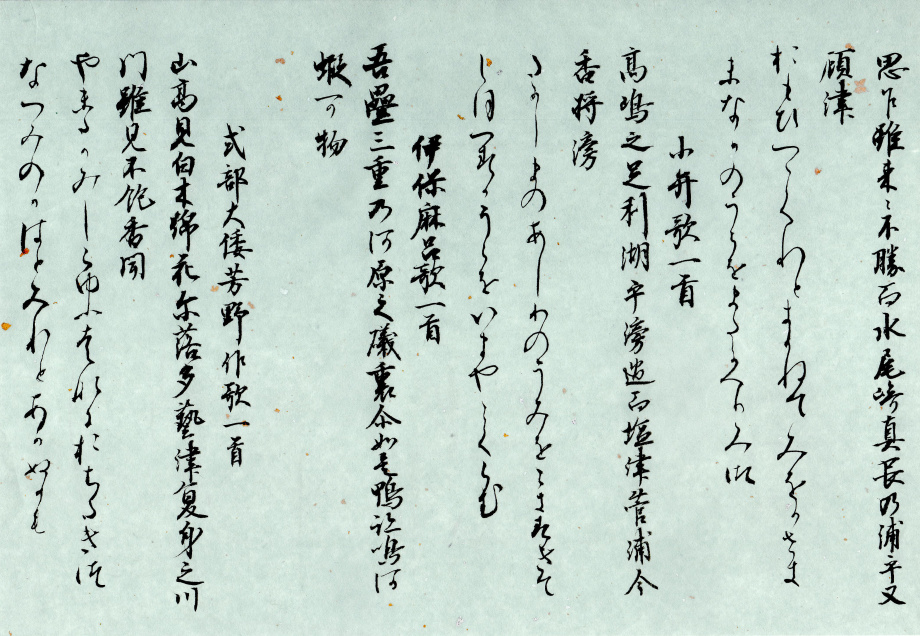 思乍雖来々不勝而水尾埼真長乃浦乎又
顧津
おもひつゝくれときかねてみをのさき
まなかのうらをまたかへりみつ
小弁歌一首
高嶋之足利湖乎滂過而塩津菅浦今
香将滂
たかしまのあしりのうみをこきすきて
しほつすかうらをいまやこくらむ
伊保麻呂歌一首
吾疊三重乃河原之礒裏尓如是鴨跡鳴河
蝦可物
式部大倭芳野作歌一首
山高見白木綿花尓落多藝津夏身之川
門雖見不飽香聞
やまたかみしらゆふはなにおちたきつ
なつみのかはとみれとあかぬかも